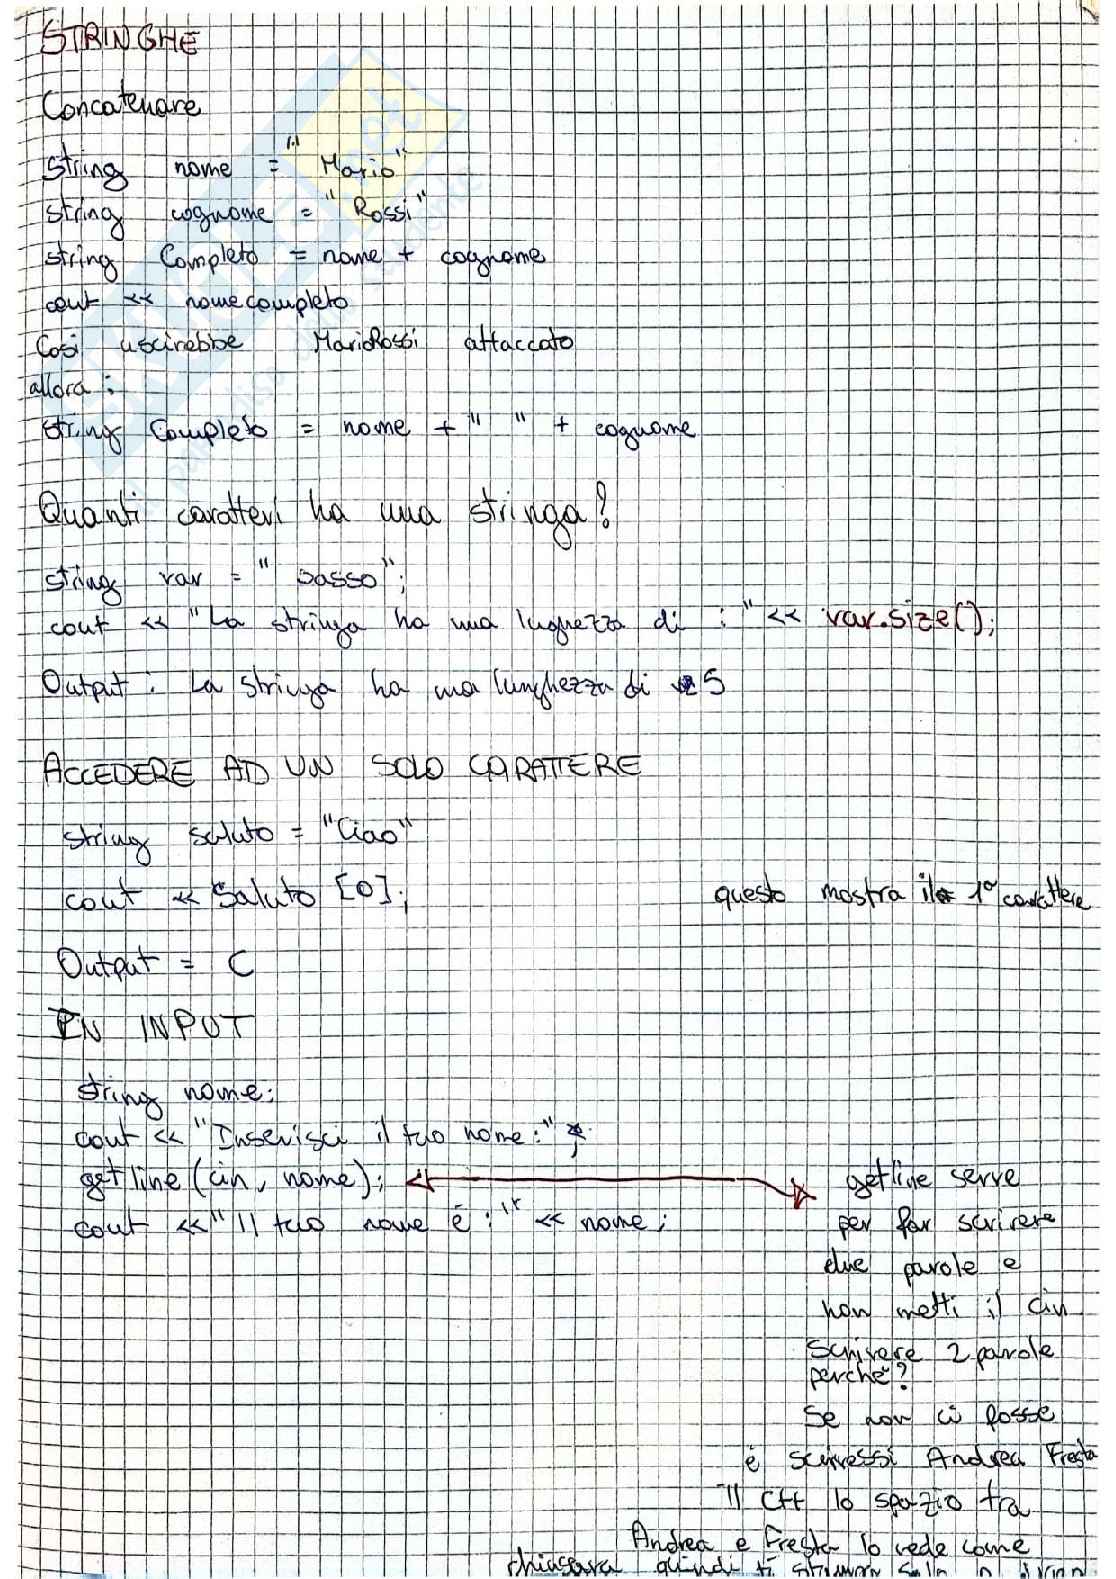 STRINGHE
Concatenare
String nome = "Mario"
string cognome = "Rossi"
string Completo = nome + cognome
cout << nomecompleto
Così uscirebbe MarioRossi attaccato
allora:
string Completo = nome + " " + cognome
Quanti caratteri ha una stringa?
string var = "sasso";
cout << "La stringa ha una lugnezza di : " << var.size();
Output: La stringa ha una lunghezza di 5
ACCEDERE AD UN SOLO CARATTERE
string saluto = "Ciao"
cout << Saluto [0]; questo mostra il 1° carattere
Output = C
IN INPUT
string nome;
cout << "Inserisci il tuo nome:" ;
getline (cin, nome); getline serve
cout << "Il tuo nome è :" << nome; per far scrivere
due parole e
non metti il cin
Scrivere 2 parole
perche?
Se non ci fosse
e scrivessi Andrea Fresta
Il C++ lo spazio tra
Andrea e Fresta lo vede come
chiusura quindi ti